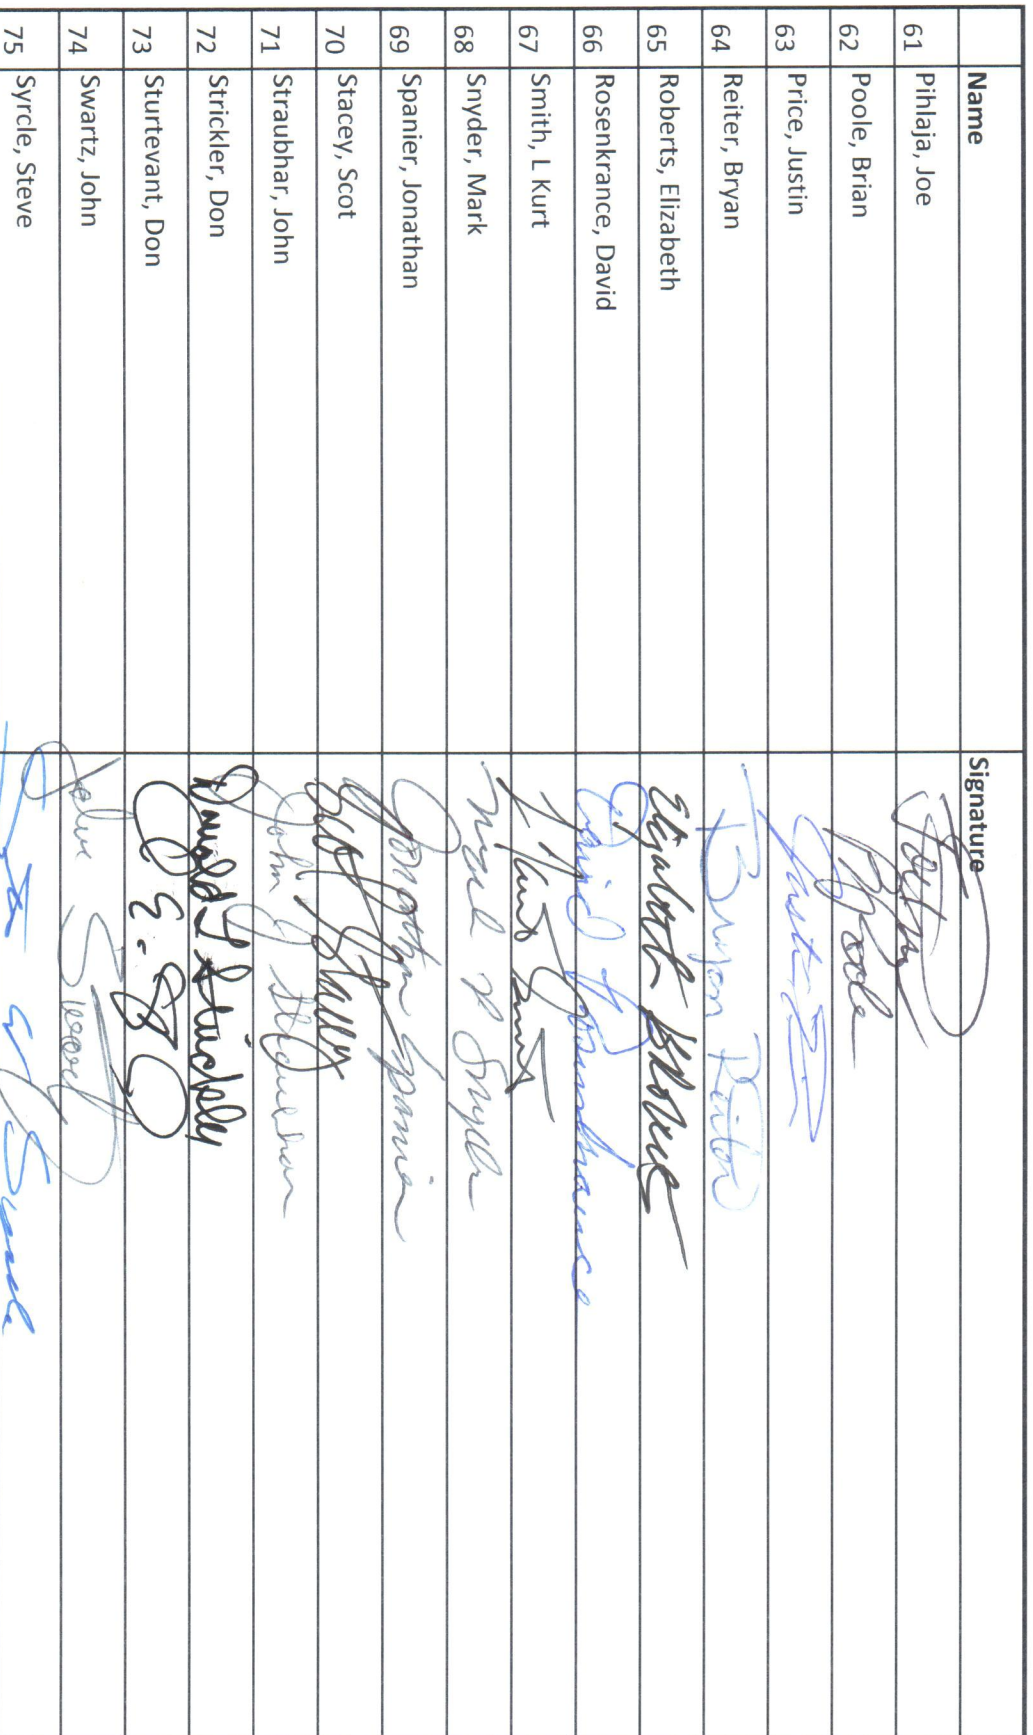 Name Signature
61 Pihlaja, Joe
62 Poole, Brian B Poole
63 Price, Justin Justin
64 Reiter, Bryan Bryan Reiter
65 Roberts, Elizabeth Elizabeth Roberts
66 Rosenkrance, David David Rosenkrance
67 Smith, L Kurt L Kurt Smith
68 Snyder, Mark Mark R Snyder
69 Spanier, Jonathan Jonathan Spanier
70 Stacey, Scot Scot Stacey
71 Straubhar, John John J Straubhar
72 Strickler, Don Donald L Strickler
73 Sturtevant, Don D E. S
74 Swartz, John John Swartz
75 Syrcle, Steve